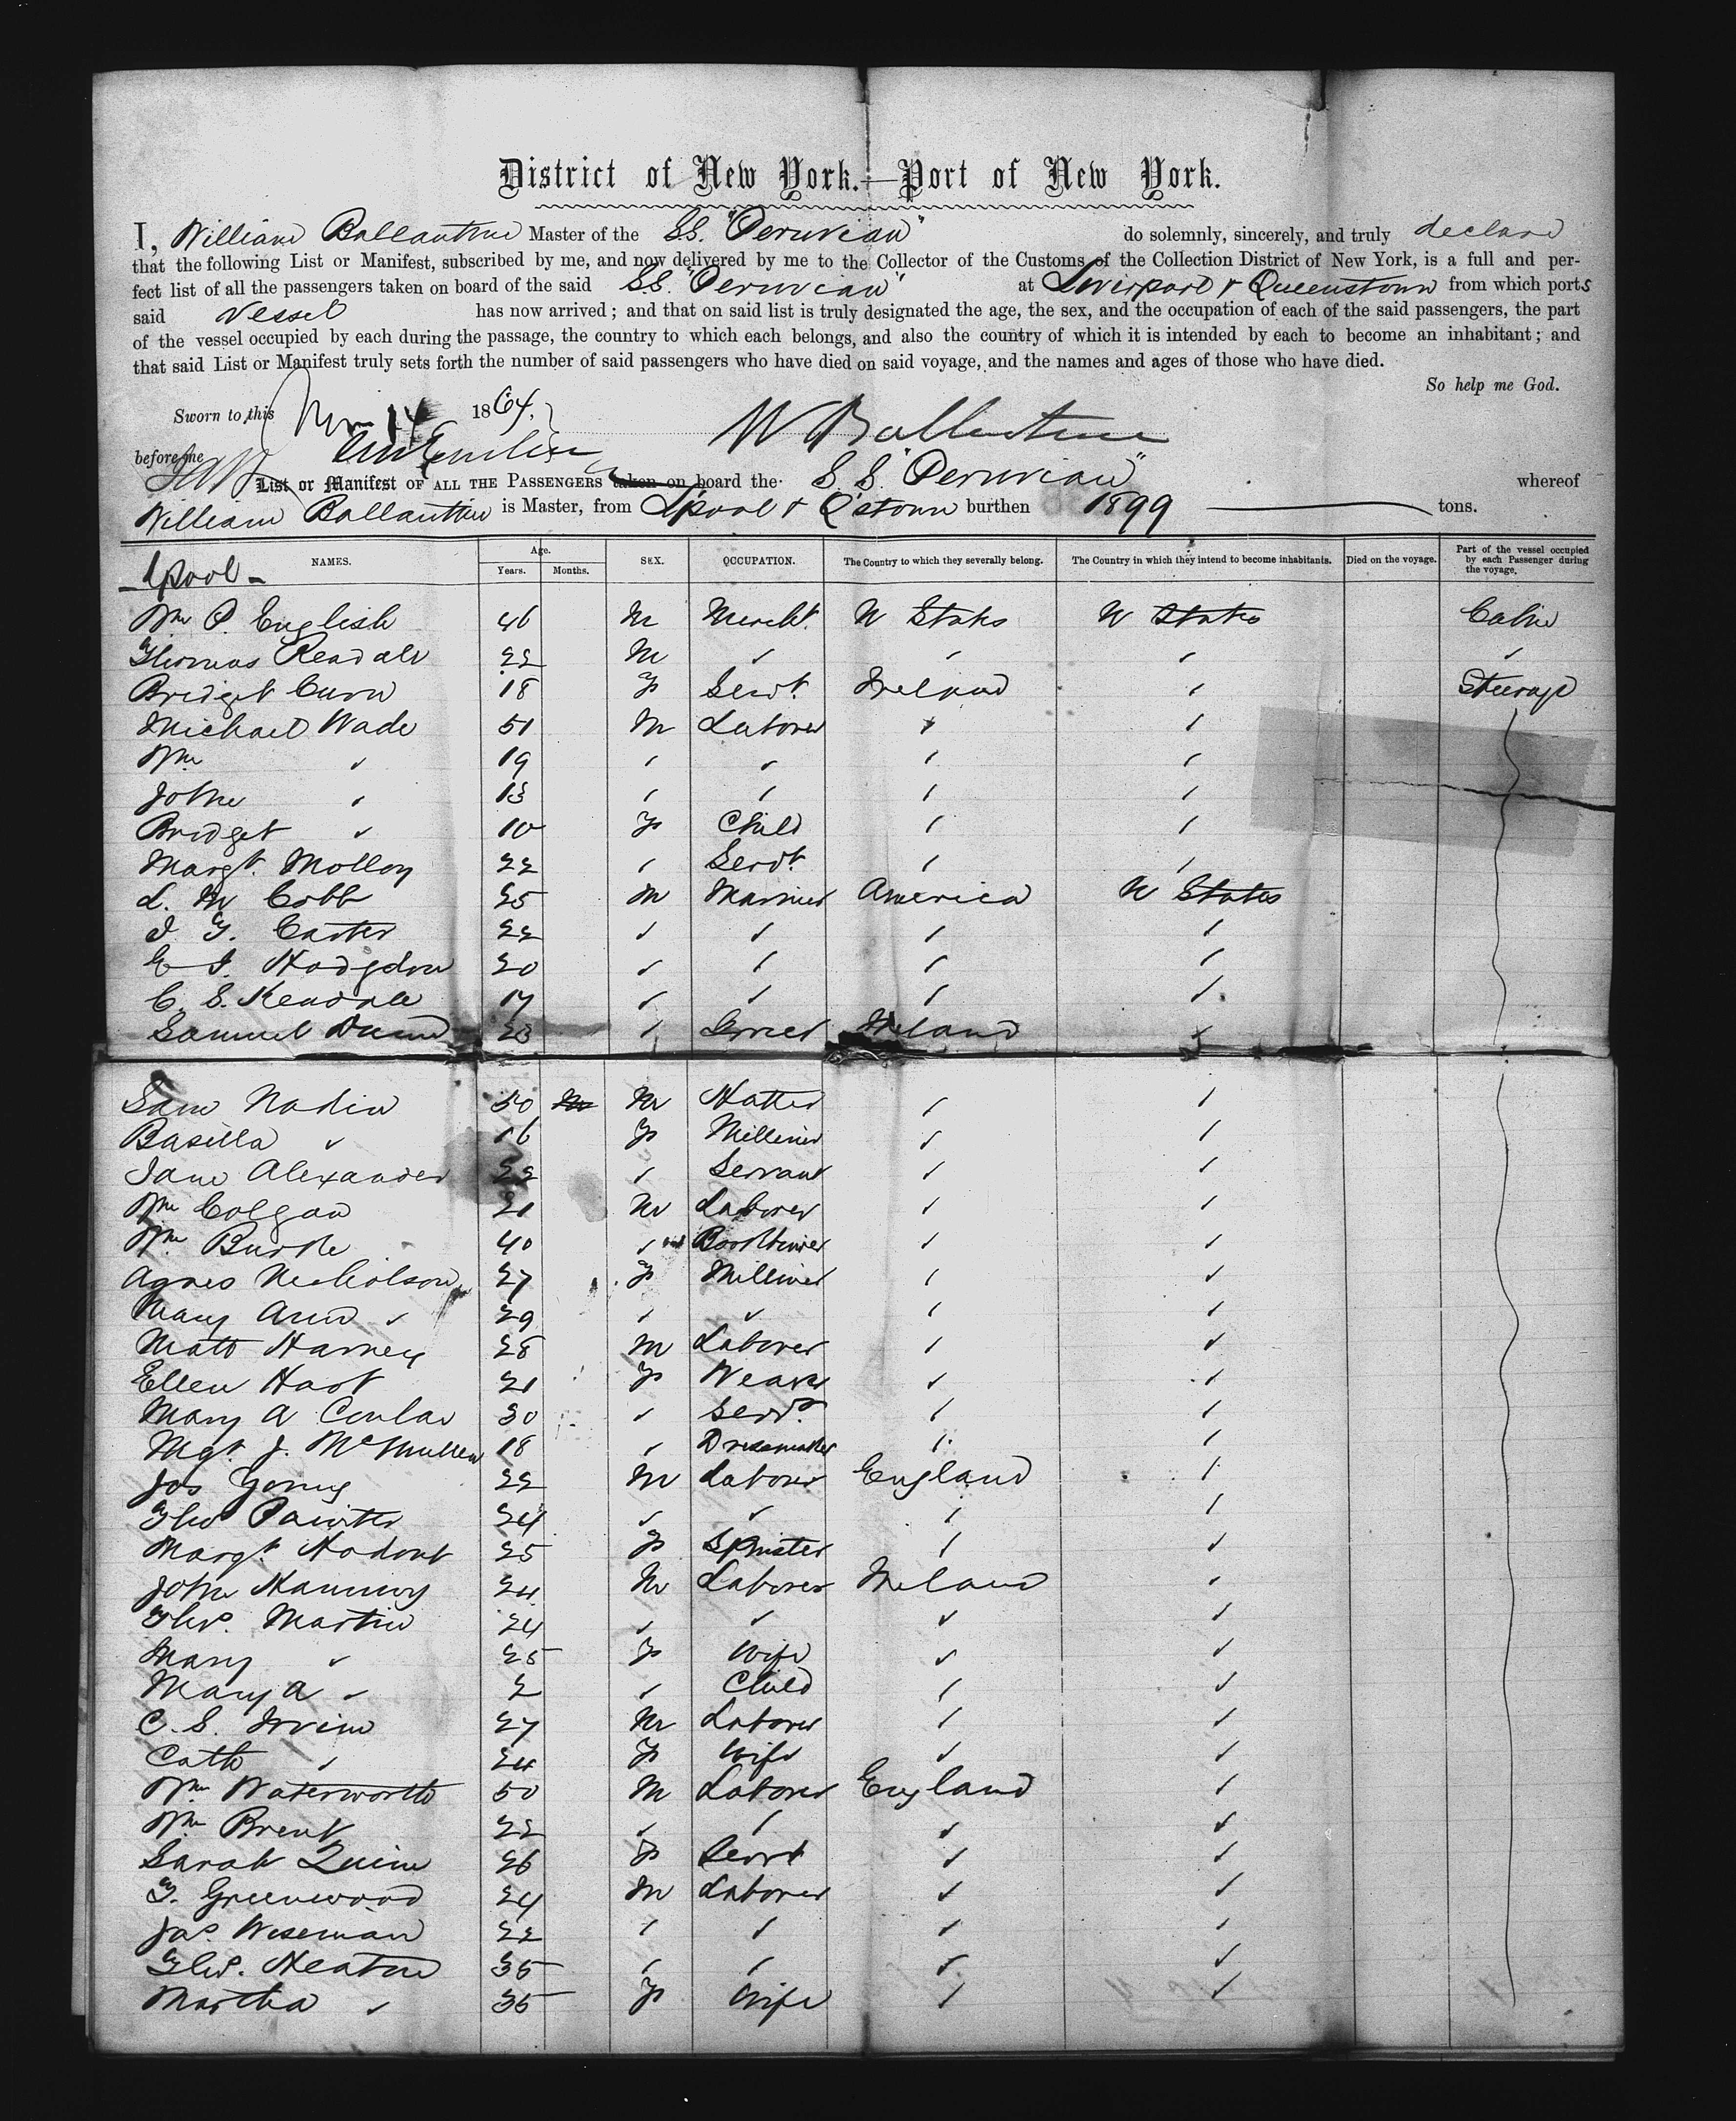 District of New York.—Port of New York.
I, William Ballantine Master of the SS. "Peruvian" do solemnly, sincerely, and truly declare
that the following List or Manifest, subscribed by me, and now delivered by me to the Collector of the Customs of the Collection District of New York, is a full and per-
fect list of all the passengers taken on board of the said SS. "Peruvian" at Liverpool & Queenstown from which ports
said Vessel has now arrived; and that on said list is truly designated the age, the sex, and the occupation of each of the said passengers, the part
of the vessel occupied by each during the passage, the country to which each belongs, and also the country of which it is intended by each to become an inhabitant; and
that said List or Manifest truly sets forth the number of said passengers who have died on said voyage, and the names and ages of those who have died.
So help me God.
Sworn to this Nov 14 1864,
W Ballantine
before me
List or Manifest OF ALL THE PASSENGERS taken on board the S.S. "Peruvian" whereof
William Ballantine is Master, from L'pool & Q'stown burthen 1899 tons.
NAMES. Age. Years. Months. SEX. OCCUPATION. The Country to which they severally belong. The Country in which they intend to become inhabitants. Died on the voyage. Part of the vessel occupied by each Passenger during the voyage.
L'pool -
Wm P. English 46 M Mercht. U States U States Cabin
Thomas Readale 22 M " " " "
Bridget Curn 18 F Servt. Ireland " Steerage
Michael Wade 51 M Laborer " "
Wm " 19 " " " "
John " 13 " " " "
Bridget " 10 F Child " "
Margt. Molloy 22 " Servt. " "
L. M Cobb 25 M Mariner America U States
J G. Carter 22 " " " "
E J. Hodgdon 20 " " " "
C. S. Kendale 17 " " " "
Samuel Dunn 23 " Grocer Ireland "
Sam Nadin 50 M Hatter " "
Basilla " 16 F Milliner " "
Jane Alexander 22 " Servant " "
Wm Colgan 21 M Laborer " "
Wm Burke 40 " Bookbinder " "
Agnes Nicholson 27 F Milliner " "
Mary Ann " 29 " " " "
Matt Harney 28 M Laborer " "
Ellen Hart 21 F Weaver " "
Mary A Conlan 30 " Servt. " "
Mgt. J. McMullen 18 " Dressmaker " "
Jos Young 22 M Laborer England "
Thos Painter 24 " " " "
Margt. Hodont 25 F Spinster " "
John Manning 24 M Laborer Ireland "
Thos. Martin 24 " " " "
Mary " 25 F Wife " "
Mary A " 2 " Child " "
C. S. Irvine 27 M Laborer " "
Cath " 24 F Wife " "
Wm Waterworth 50 M Laborer England "
Wm Brent 22 " " " "
Sarah Quinn 26 F Servt " "
T. Greenwood 24 M Laborer " "
Jas. Wiseman 22 " " " "
Thos. Heaton 35 " " " "
Martha " 35 F Wife " "